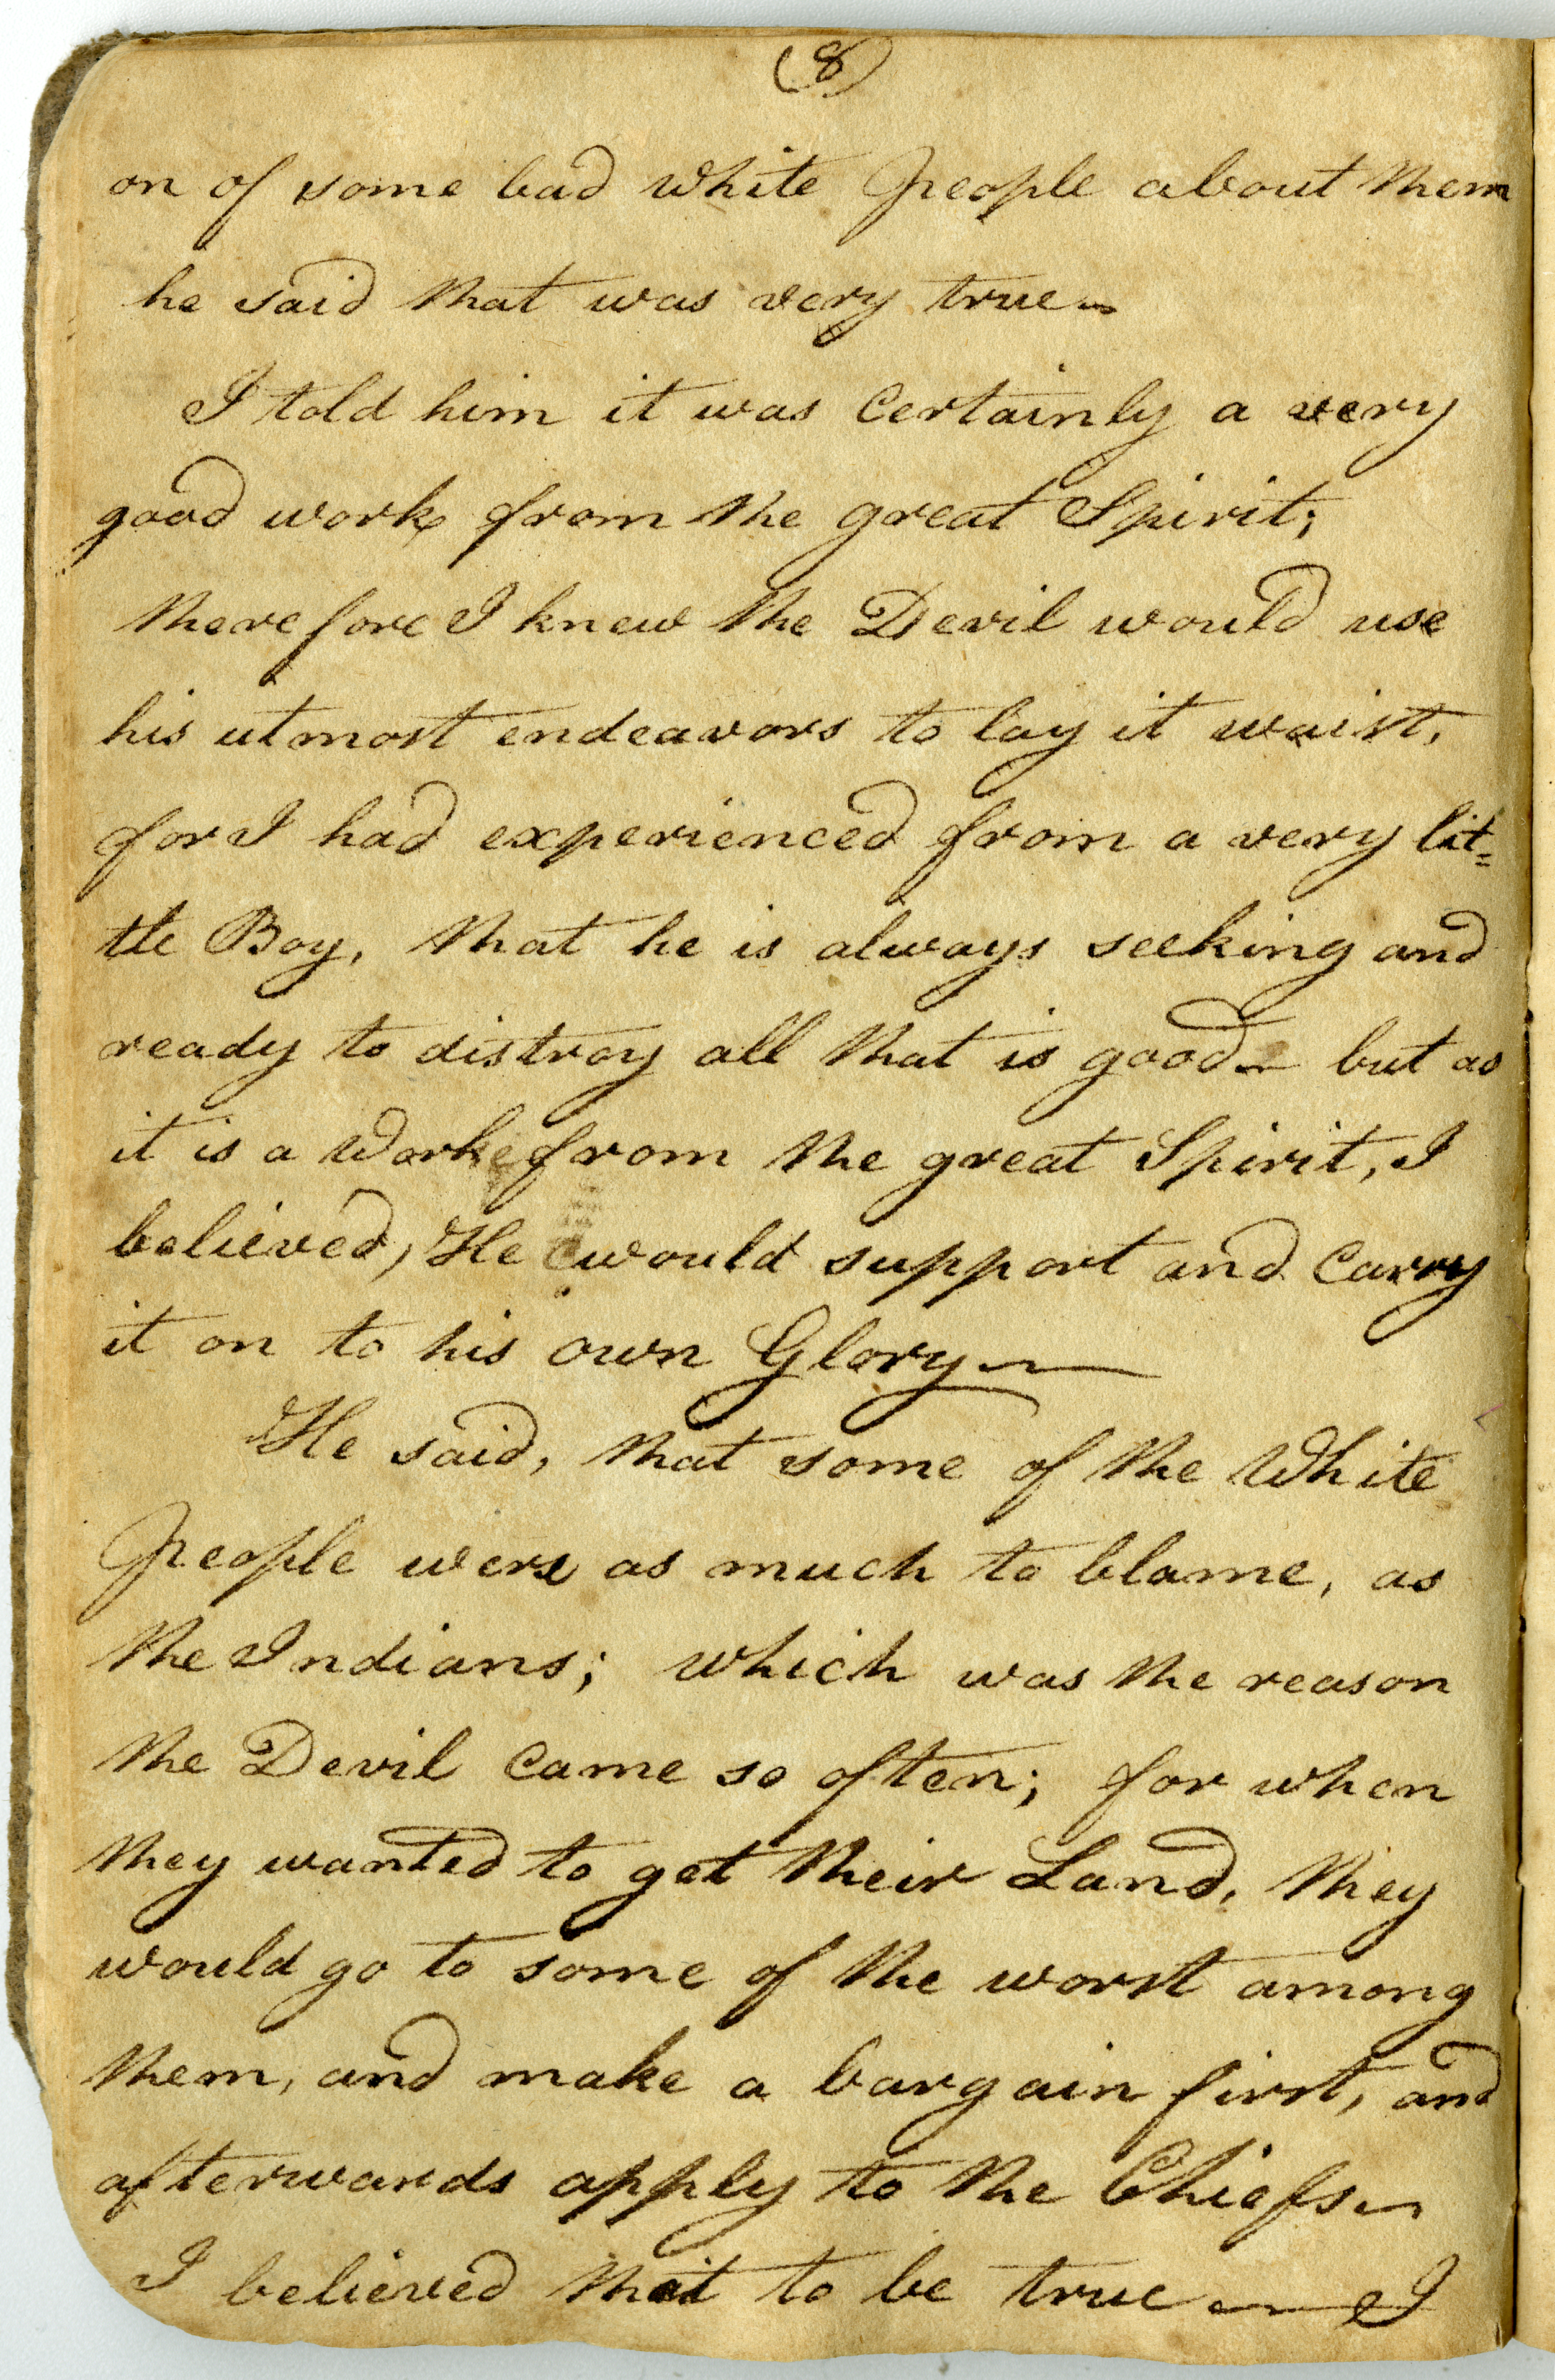 (8)
on of some bad white People about them
he said that was very true~
I told him it was Certainly a very
good work, from the great Spirit;
therefore I knew the Devil would use
his utmost endeavors to lay it waist,
for I had experienced from a very lit=
tle Boy, that he is always seeking and
ready to distroy all that is good~ but as
it is a Work from the great Spirit, I
believed, He would support and Carry
it on to his own Glory~
He said, that some of the White
People were as much to blame, as
the Indians; which was the reason
the Devil Came so often; for when
they wanted to get their Land, they
would go to some of the worst among
them, and make a bargain first, and
afterwards apply to the Chiefs~
I believed that to be true~ I